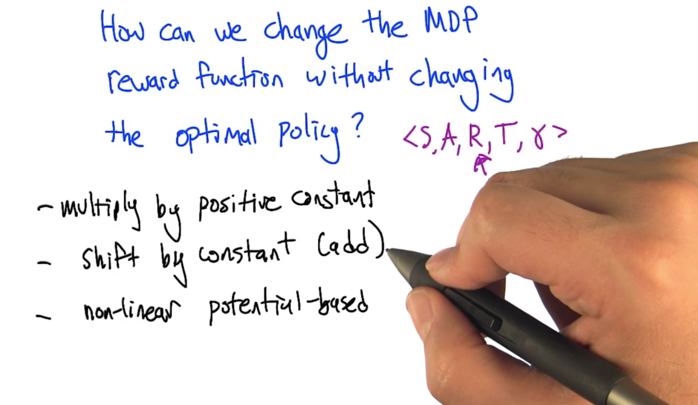 How can we change the MDP
reward function without changing
the optimal policy? <S, A, R, T, γ>
- multiply by positive constant
- shift by constant (add)
- non-linear potential-based